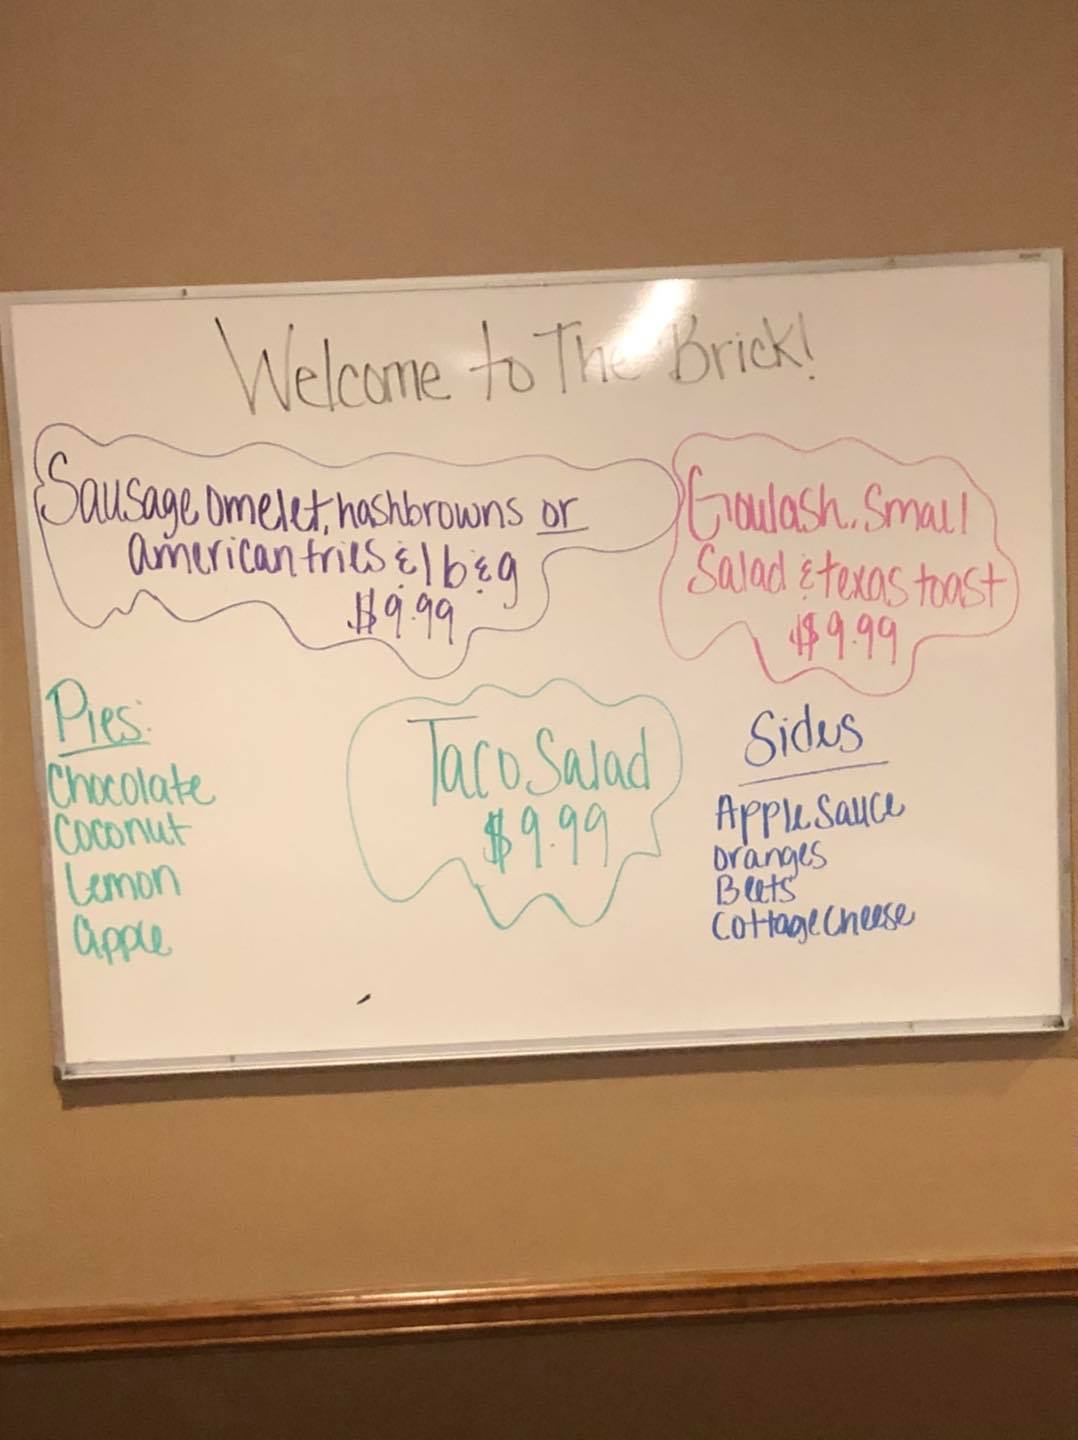 Welcome to The Brick!
Sausage omelet, hashbrowns or
american fries & 1 b & g
$9.99
Goulash, Small
Salad & texas toast
$9.99
Pies:
Chocolate
Coconut
Lemon
apple
Taco Salad
$9.99
Sides
Apple Sauce
oranges
Beets
Cottage Cheese